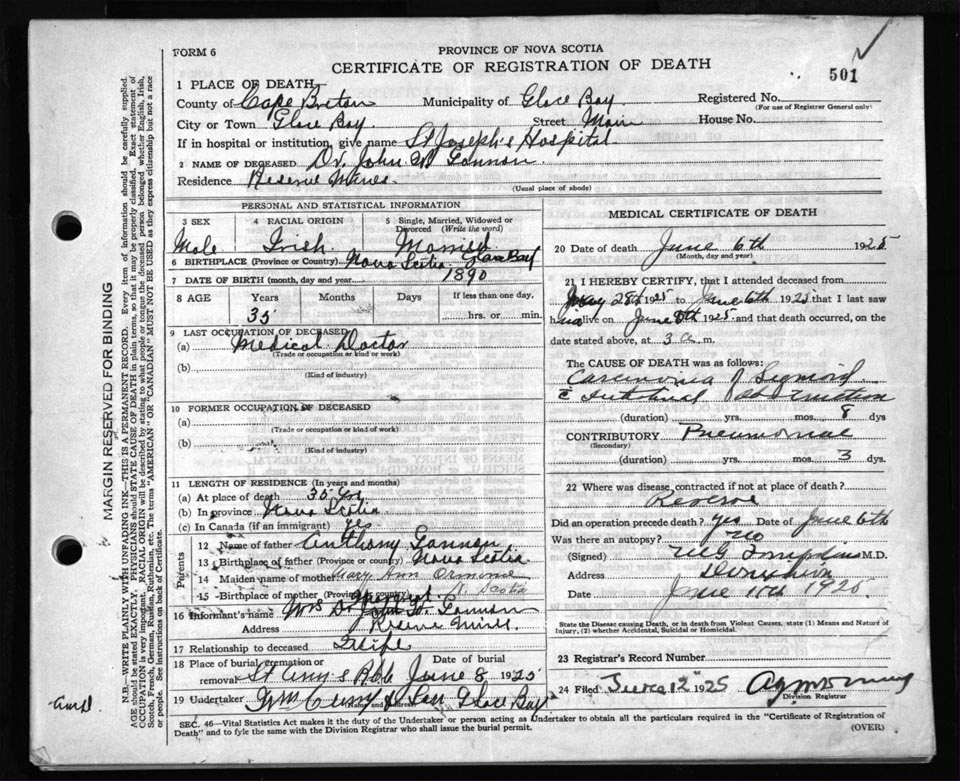 FORM 6
PROVINCE OF NOVA SCOTIA
CERTIFICATE OF REGISTRATION OF DEATH
501
MARGIN RESERVED FOR BINDING
N.B.—WRITE PLAINLY WITH UNFADING INK—THIS IS A PERMANENT RECORD. Every item of information should be carefully supplied.
AGE should be stated EXACTLY. PHYSICIANS should STATE CAUSE OF DEATH in plain terms, so that it may be properly classified. Exact statement of
OCCUPATION is very important. RACIAL ORIGIN will be described by stating to what people or tongue the deceased person belonged, whether English, Irish,
Scotch, French, German, Russian, Ruthenian, etc. The terms "AMERICAN" or "CANADIAN" MUST NOT BE USED as they express citizenship but not a race
or people. See instructions on back of Certificate.
1 PLACE OF DEATH
County of Cape Breton Municipality of Glace Bay Registered No.
(For use of Registrar General only)
City or Town Glace Bay Street Main House No.
If in hospital or institution, give name St Joseph's Hospital
2 NAME OF DECEASED Dr. John Lannon
Residence Reserve Mines
(Usual place of abode)
PERSONAL AND STATISTICAL INFORMATION
3 SEX 4 RACIAL ORIGIN 5 Single, Married, Widowed or Divorced (Write the word)
Male Irish Married
6 BIRTHPLACE (Province or Country) Nova Scotia Glace Bay
7 DATE OF BIRTH (month, day and year) 1890
8 AGE Years Months Days If less than one day,
35 hrs. or min.
9 LAST OCCUPATION OF DECEASED
(a) Medical Doctor
(Trade or occupation or kind or work)
(b)
(Kind of industry)
10 FORMER OCCUPATION OF DECEASED
(a)
(Trade or occupation or kind of work)
(b)
(Kind of industry)
11 LENGTH OF RESIDENCE (In years and months)
(a) At place of death 35 yrs
(b) In province Nova Scotia
(c) In Canada (if an immigrant) yes
Parents
12 Name of father Anthony Lannon
13 Birthplace of father (Province or country) Nova Scotia
14 Maiden name of mother Mary Ann Ormond
15 Birthplace of mother (Province or country) N. Scotia
16 Informant's name Mrs Dr John Lannon
Address Reserve Mines
17 Relationship to deceased Wife
18 Place of burial, cremation or removal St Ann's Date of burial June 8 1925
19 Undertaker Wm Curry & Son Glace Bay
Name and Address
MEDICAL CERTIFICATE OF DEATH
20 Date of death June 6th 1925
(Month, day and year)
21 I HEREBY CERTIFY, that I attended deceased from
May 28th 1925 to June 6th 1925 that I last saw
him alive on June 1925 and that death occurred, on the
date stated above, at 3 a m.
The CAUSE OF DEATH was as follows:
Carcinoma of Sigmoid
c Intestinal obstruction
(duration) yrs. mos. 8 dys
CONTRIBUTORY Pneumonia
(Secondary)
(duration) yrs. mos. 3 dys.
22 Where was disease contracted if not at place of death?
Reserve
Did an operation precede death? yes Date of June 6th
Was there an autopsy? No
(Signed) M.D.
Address Dominion
Date June 11th 1925
State the Disease causing Death, or in death from Violent Causes, state (1) Means and Nature of
Injury, (2) whether Accidental, Suicidal or Homicidal.
23 Registrar's Record Number
24 Filed June 12 1925
Division Registrar
SEC. 46—Vital Statistics Act makes it the duty of the Undertaker or person acting as Undertaker to obtain all the particulars required in the "Certificate of Registration of
Death" and to fyle the same with the Division Registrar who shall issue the burial permit. (OVER)